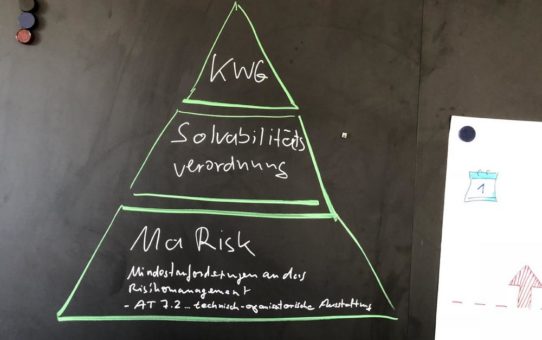 KWG
Solvabilitäts
verordnung
MaRisk
Mindestanforderungen an das
Risikomanagement
- AT 7.2 ... technisch-organisatorische Ausstattung
1